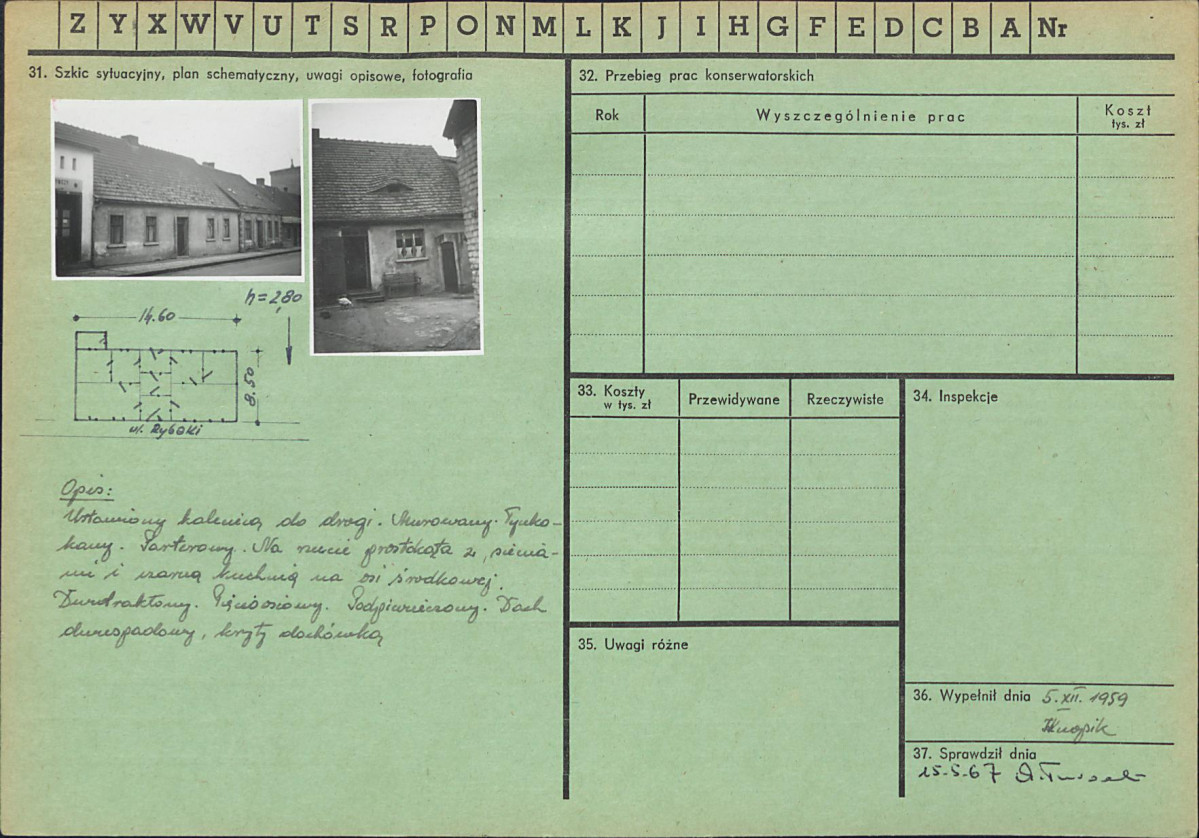 Z Y X W V U T S R P O N M L K J I H G F E D C B A Nr
31. Szkic sytuacyjny, plan schematyczny, uwagi opisowe, fotografia
h=2,80
14.60
8.50
ul. Rybaki
Opis:
Ustawiony kalenicą do drogi. Murowany. Tynko-
wany. Parterowy. Na rzucie prostokąta z sienia-
mi i czarną kuchnią na osi środkowej.
Dwutraktowy. Pięcioosiowy. Podpiwniczony. Dach
dwuspadowy, kryty dachówką
32. Przebieg prac konserwatorskich
Rok
Wyszczególnienie prac
Koszt
tys. zł
33. Koszty
w tys. zł
Przewidywane
Rzeczywiste
34. Inspekcje
35. Uwagi różne
36. Wypełnił dnia 5.XII.1959
37. Sprawdził dnia
15-5-67